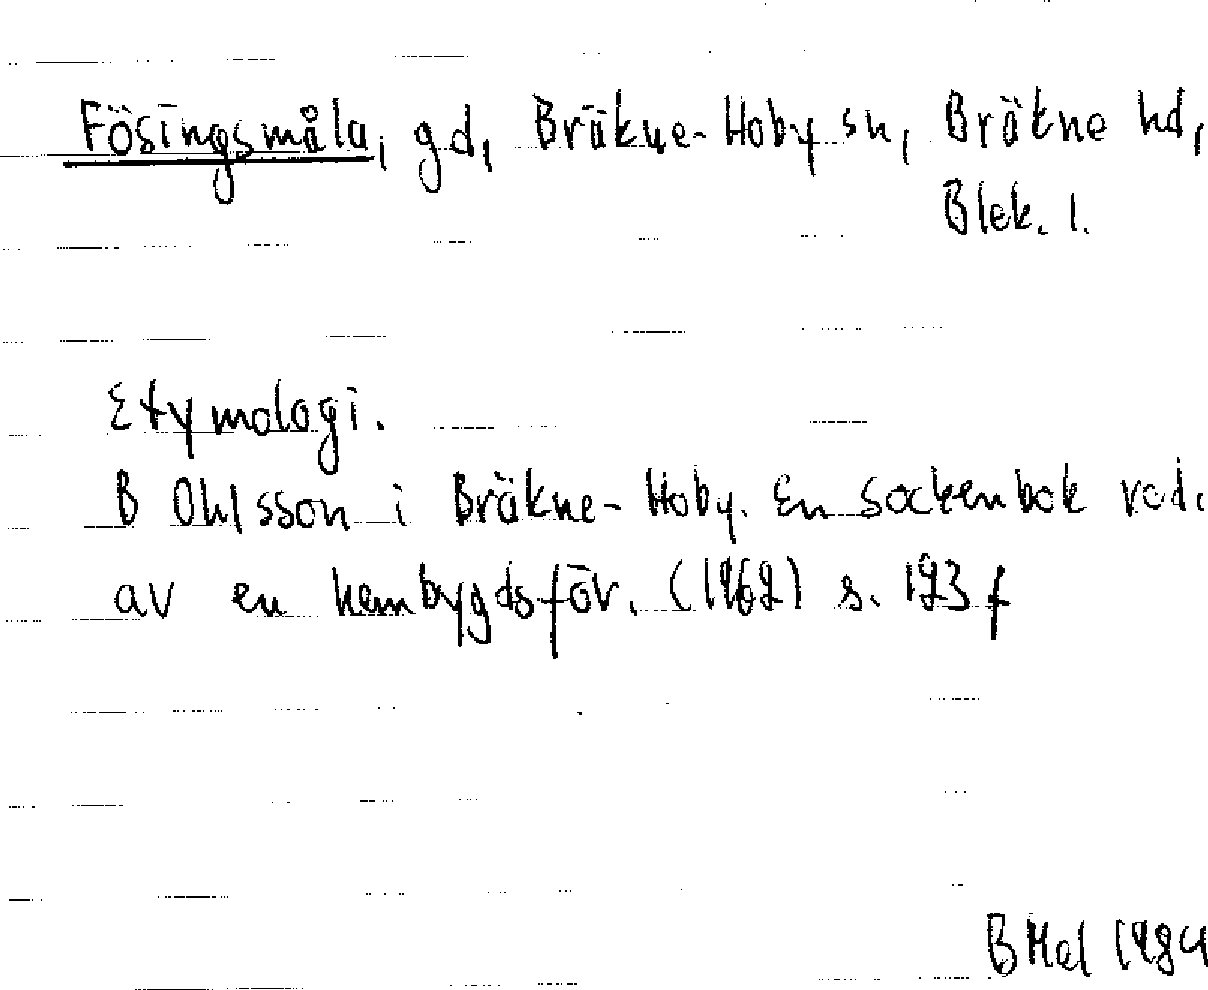 Fösingsmåla, gd, Bräkne-Hoby sn, Bräkne hd,
Blek. l.
Etymologi.
B Ohlsson i Bräkne-Hoby. En sockenbok red.
av en hembygdsför. (1962) s. 123 f
B Hel 1984